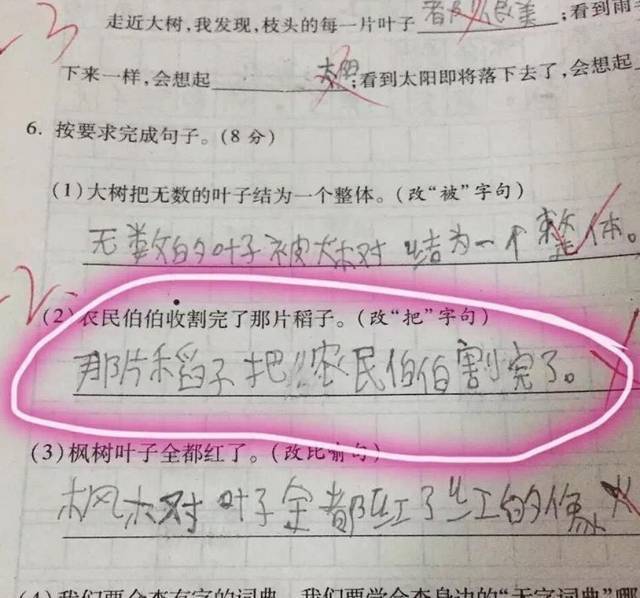 走近大树,我发现,枝头的每一片叶子____;看到雨
下来一样,会想起____;看到太阳即将落下去了,会想起
6. 按要求完成句子。(8分)
(1)大树把无数的叶子结为一个整体。(改“被”字句)
无数的叶子被大树结为一个整体。
(2)农民伯伯收割完了那片稻子。(改“把”字句)
那片稻子把农民伯伯割完了。
(3)枫树叶子全都红了。(改比喻句)
枫树叶子全都红了红的像火